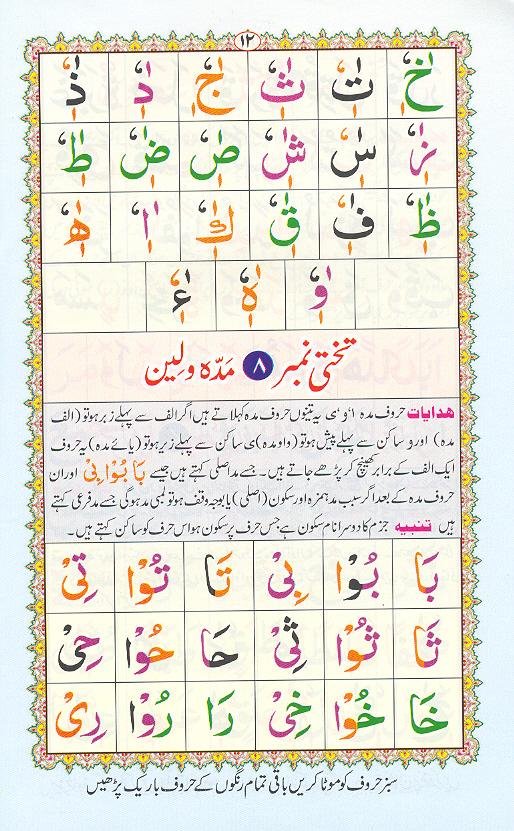 ١٢
خٰٖٗ تٰٖٗ ثٰٖٗ جٰٖٗ دٰٖٗ ذٰٖٗ
زٰٖٗ سٰٖٗ شٰٖٗ صٰٖٗ ضٰٖٗ طٰٖٗ
ظٰٖٗ فٰٖٗ قٰٖٗ كٰٖٗ اٰٖٗ ھٰٖٗ
وٰٖٗ هٰٖٗ ءٰٖٗ
تختی نمبر ٨ مَدّہ ولِین
ہدایات حروف مدہ ا، و، ی یہ تینوں حروف مدہ کہلاتے ہیں اگر الف سے پہلے زبر ہو تو (الف
مدہ) اور و ساکن سے پہلے پیش ہو تو (واو مدہ) ی ساکن سے پہلے زیر ہو تو (یائے مدہ) یہ حروف
ایک الف کے برابر کھینچ کر پڑھے جاتے ہیں۔ جسے مد اصلی کہتے ہیں جیسے بَا بُوْا بِیْ اور ان
حروف مدہ کے بعد اگر سبب مد ہمزہ اور سکون (اصلی) یا بوجہ وقف ہو تو لمبی مد ہوگی جسے مد فرعی کہتے
ہیں تنبیہ جزم کا دوسرا نام سکون ہے جس حرف پر سکون ہو اس حرف کو ساکن کہتے ہیں۔
بَا بُوْا بِیْ تَا تُوْا تِیْ
ثَا ثُوْا ثِیْ حَا حُوْا حِیْ
خَا خُوْا خِیْ رَا رُوْا رِیْ
سبز حروف کو موٹا کریں باقی تمام رنگوں کے حروف باریک پڑھیں